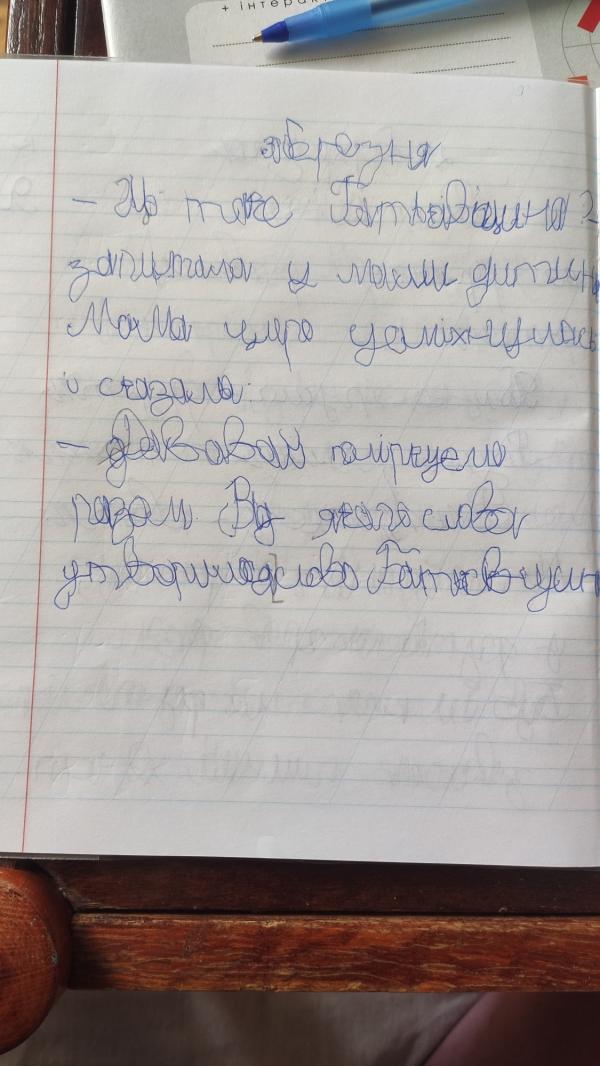 + інтеракт
зберезня
- Що таке Батьківщина? -
запитала у мами дитин
Мама щиро усміхнулась
і сказала:
- Дававай поміркуємо
разом. Від якого слова
утворилося слово Батьківщин